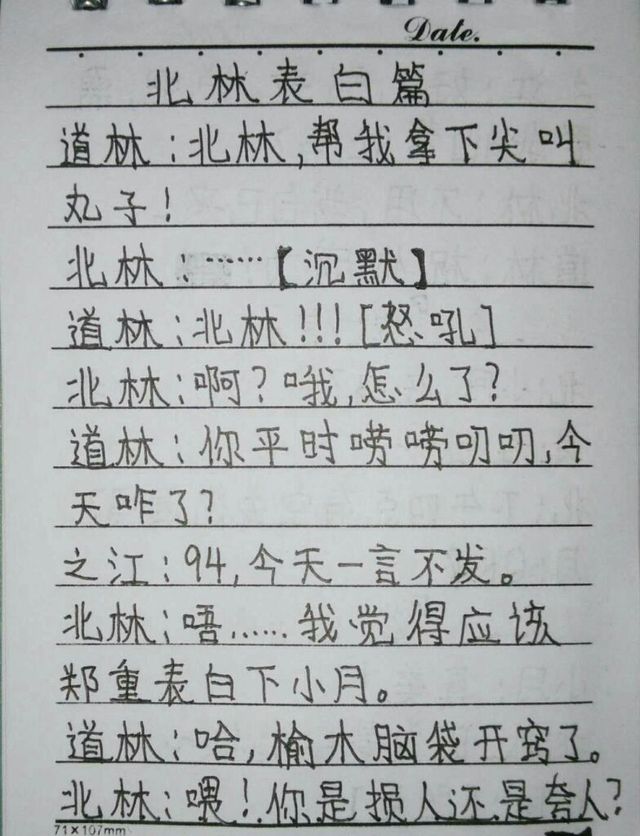 Date.
北林表白篇
道林：北林，帮我拿下尖叫
丸子！
北林：……【沉默】
道林：北林!!!［怒吼］
北林：啊？哦，怎么了？
道林：你平时唠唠叨叨，今
天咋了？
之江：94，今天一言不发。
北林：唔……我觉得应该
郑重表白下小月。
道林：哈，榆木脑袋开窍了。
北林：喂！你是损人还是夸人？
71×107mm